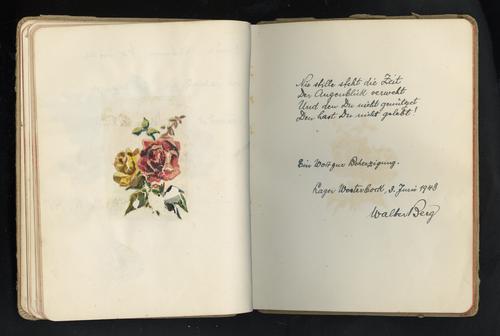 Nie stille steht die Zeit
Der Augenblick verweht
Und den Du nicht genützet
Den hast Du nicht gelebt!
Ein Wort zur Beherzigung.
Lager Westerbork, 3. Juni 1943
Walter Berg